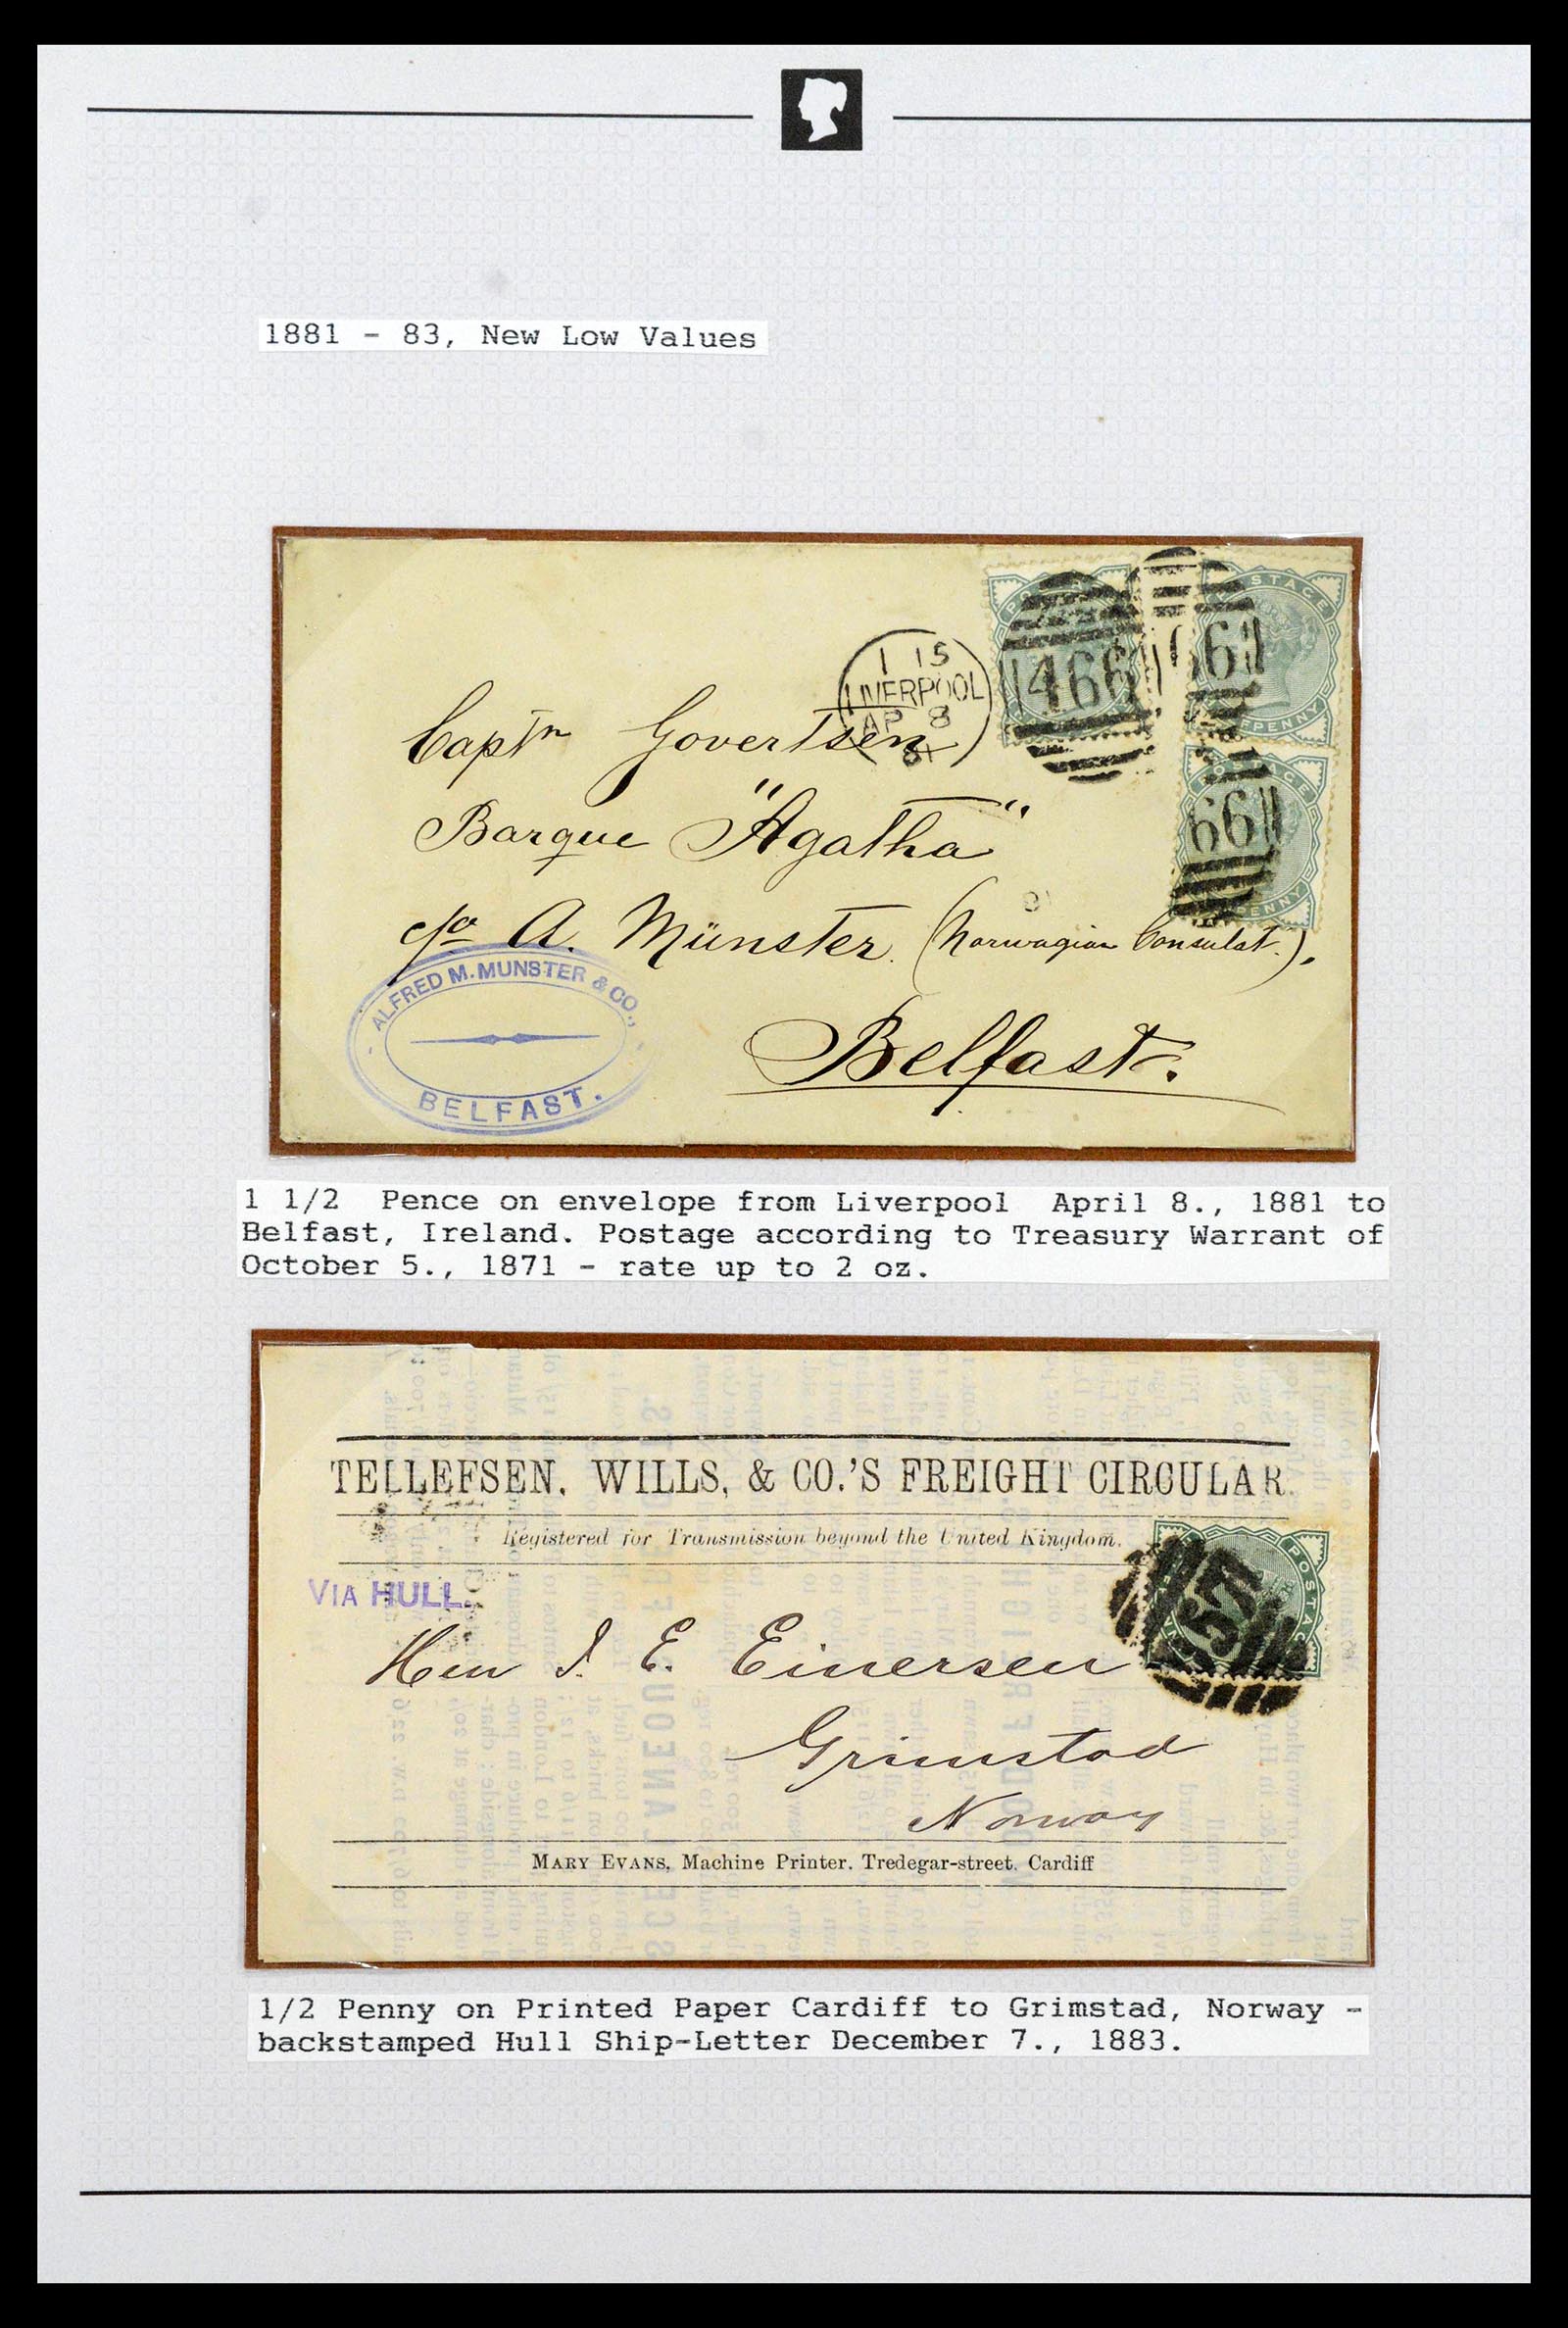 1881 - 83, New Low Values
1 15
LIVERPOOL
AP 8
81
466
66
66
POSTAGE
PENNY
Captn Govertsen
Barque "Agatha"
c/o A. Münster (Norwegian Consulat.).
Belfast.
ALFRED M. MUNSTER & CO.,
BELFAST.
1 1/2 Pence on envelope from Liverpool April 8., 1881 to
Belfast, Ireland. Postage according to Treasury Warrant of
October 5., 1871 - rate up to 2 oz.
TELLEFSEN, WILLS, & CO.'S FREIGHT CIRCULAR.
Registered for Transmission beyond the United Kingdom.
VIA HULL.
Herr J. E. Einersen
Grimstad
Norway
MARY EVANS, Machine Printer, Tredegar-street, Cardiff
1/2 Penny on Printed Paper Cardiff to Grimstad, Norway -
backstamped Hull Ship-Letter December 7., 1883.